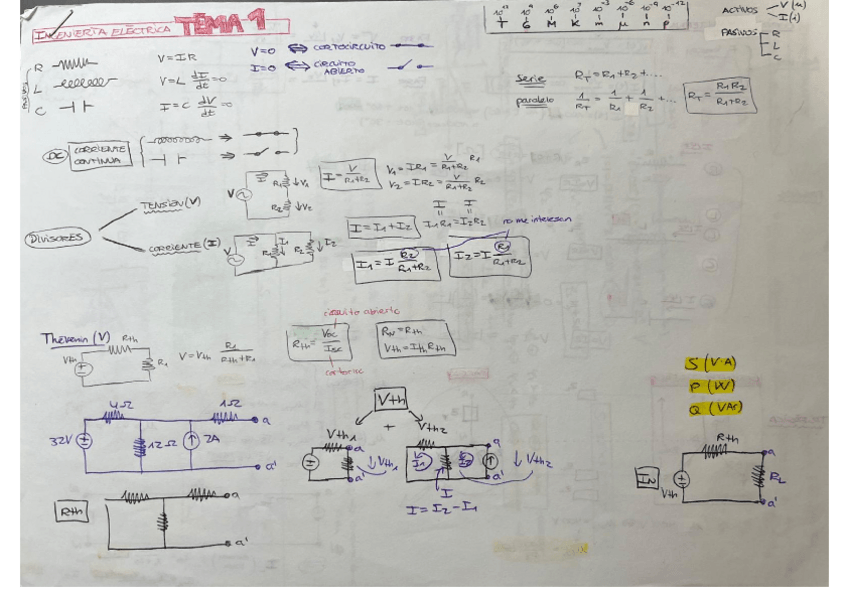 INGENIERÍA ELÉCTRICA TEMA 1
10¹² 10⁹ 10⁶ 10³ 10⁻³ 10⁻⁶ 10⁻⁹ 10⁻¹²
T G M K m μ n p
ACTIVOS V (u)
I (i)
PASIVOS R
L
C
R V = IR
L V = L dI/dt = 0
C I = C dV/dt = 0
V=0 ⇔ CORTOCIRCUITO
I=0 ⇔ CIRCUITO ABIERTO
serie RT = R1 + R2 + ....
paralelo 1/RT = 1/R1 + 1/R2 + ... RT = R1R2/R1+R2
DC CORRIENTE CONTINUA
DIVISORES
TENSIÓN (V)
V I R1 V1
R2 V2
I = V/R1+R2
V1 = IR1 = V/R1+R2 R1
V2 = IR2 = V/R1+R2 R2
CORRIENTE (I)
V I I1 R1 R2 I2
I = I1 + I2 I1R1 = I2R2 no me interesan
I1 = I R2/R1+R2 I2 = I R1/R1+R2
Thévenin (V)
Rth
Vth R1
V = Vth R1/Rth+R1
circuito abierto
Rth = Voc/Isc
RN = Rth
Vth = Ith Rth
S (V·A)
P (W)
Q (VAr)
4Ω 1Ω a
32V 12Ω 2A
a'
Vth
Vth1 + Vth2
a a
↓Vth1 I1 I2 ↓Vth2
a' a'
I
I = I2 - I1
Rth a
a'
Rth a
Vth RL
a'